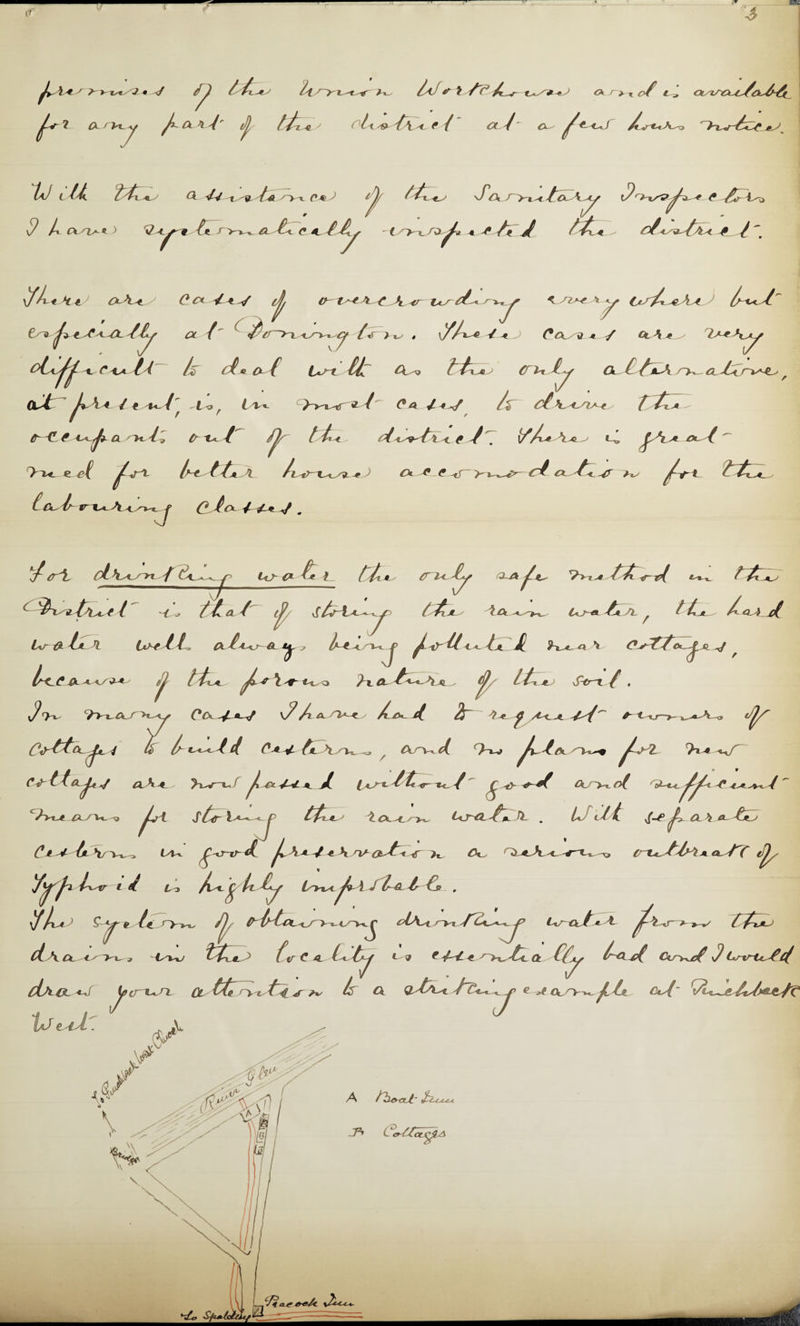 3
premises of the Union Workhouse and is available
for any part of the district at a few hours notice.
With the assistance of the Sanitary Inspectors
I have systematically inspected the district.
There are cases of overcrowding everywhere but
especially at Donington. These cases are very
difficult to deal with as the only alternative,
at present, is, in most cases, to drive the
occupants out of the district. There is great
need for better house accommodation for the
labouring classes.
For drinking water the only safe method in the
District is that of storing the rain water, the hard
water well always being polluted near cottages,
because of the porous nature of the soil.
In many cases I have had to request owners of
Cottages to build cisterns, and no plans for new
cottages are now passed without good and sufficient
means for storing the rain water. With separate
Cisterns in good preservation a serious outbreak of
Typhoid is highly improbable.
The system of obtaining drinking water from the
drains in the locality is essentially bad and I would
draw your attention to a striking example at Pinchbeck
West.
To Pinchbeck West Church
River Glen
Bridge
A
B
B
A Boat Inn
B Cottages
Peacock Inn
To Spalding